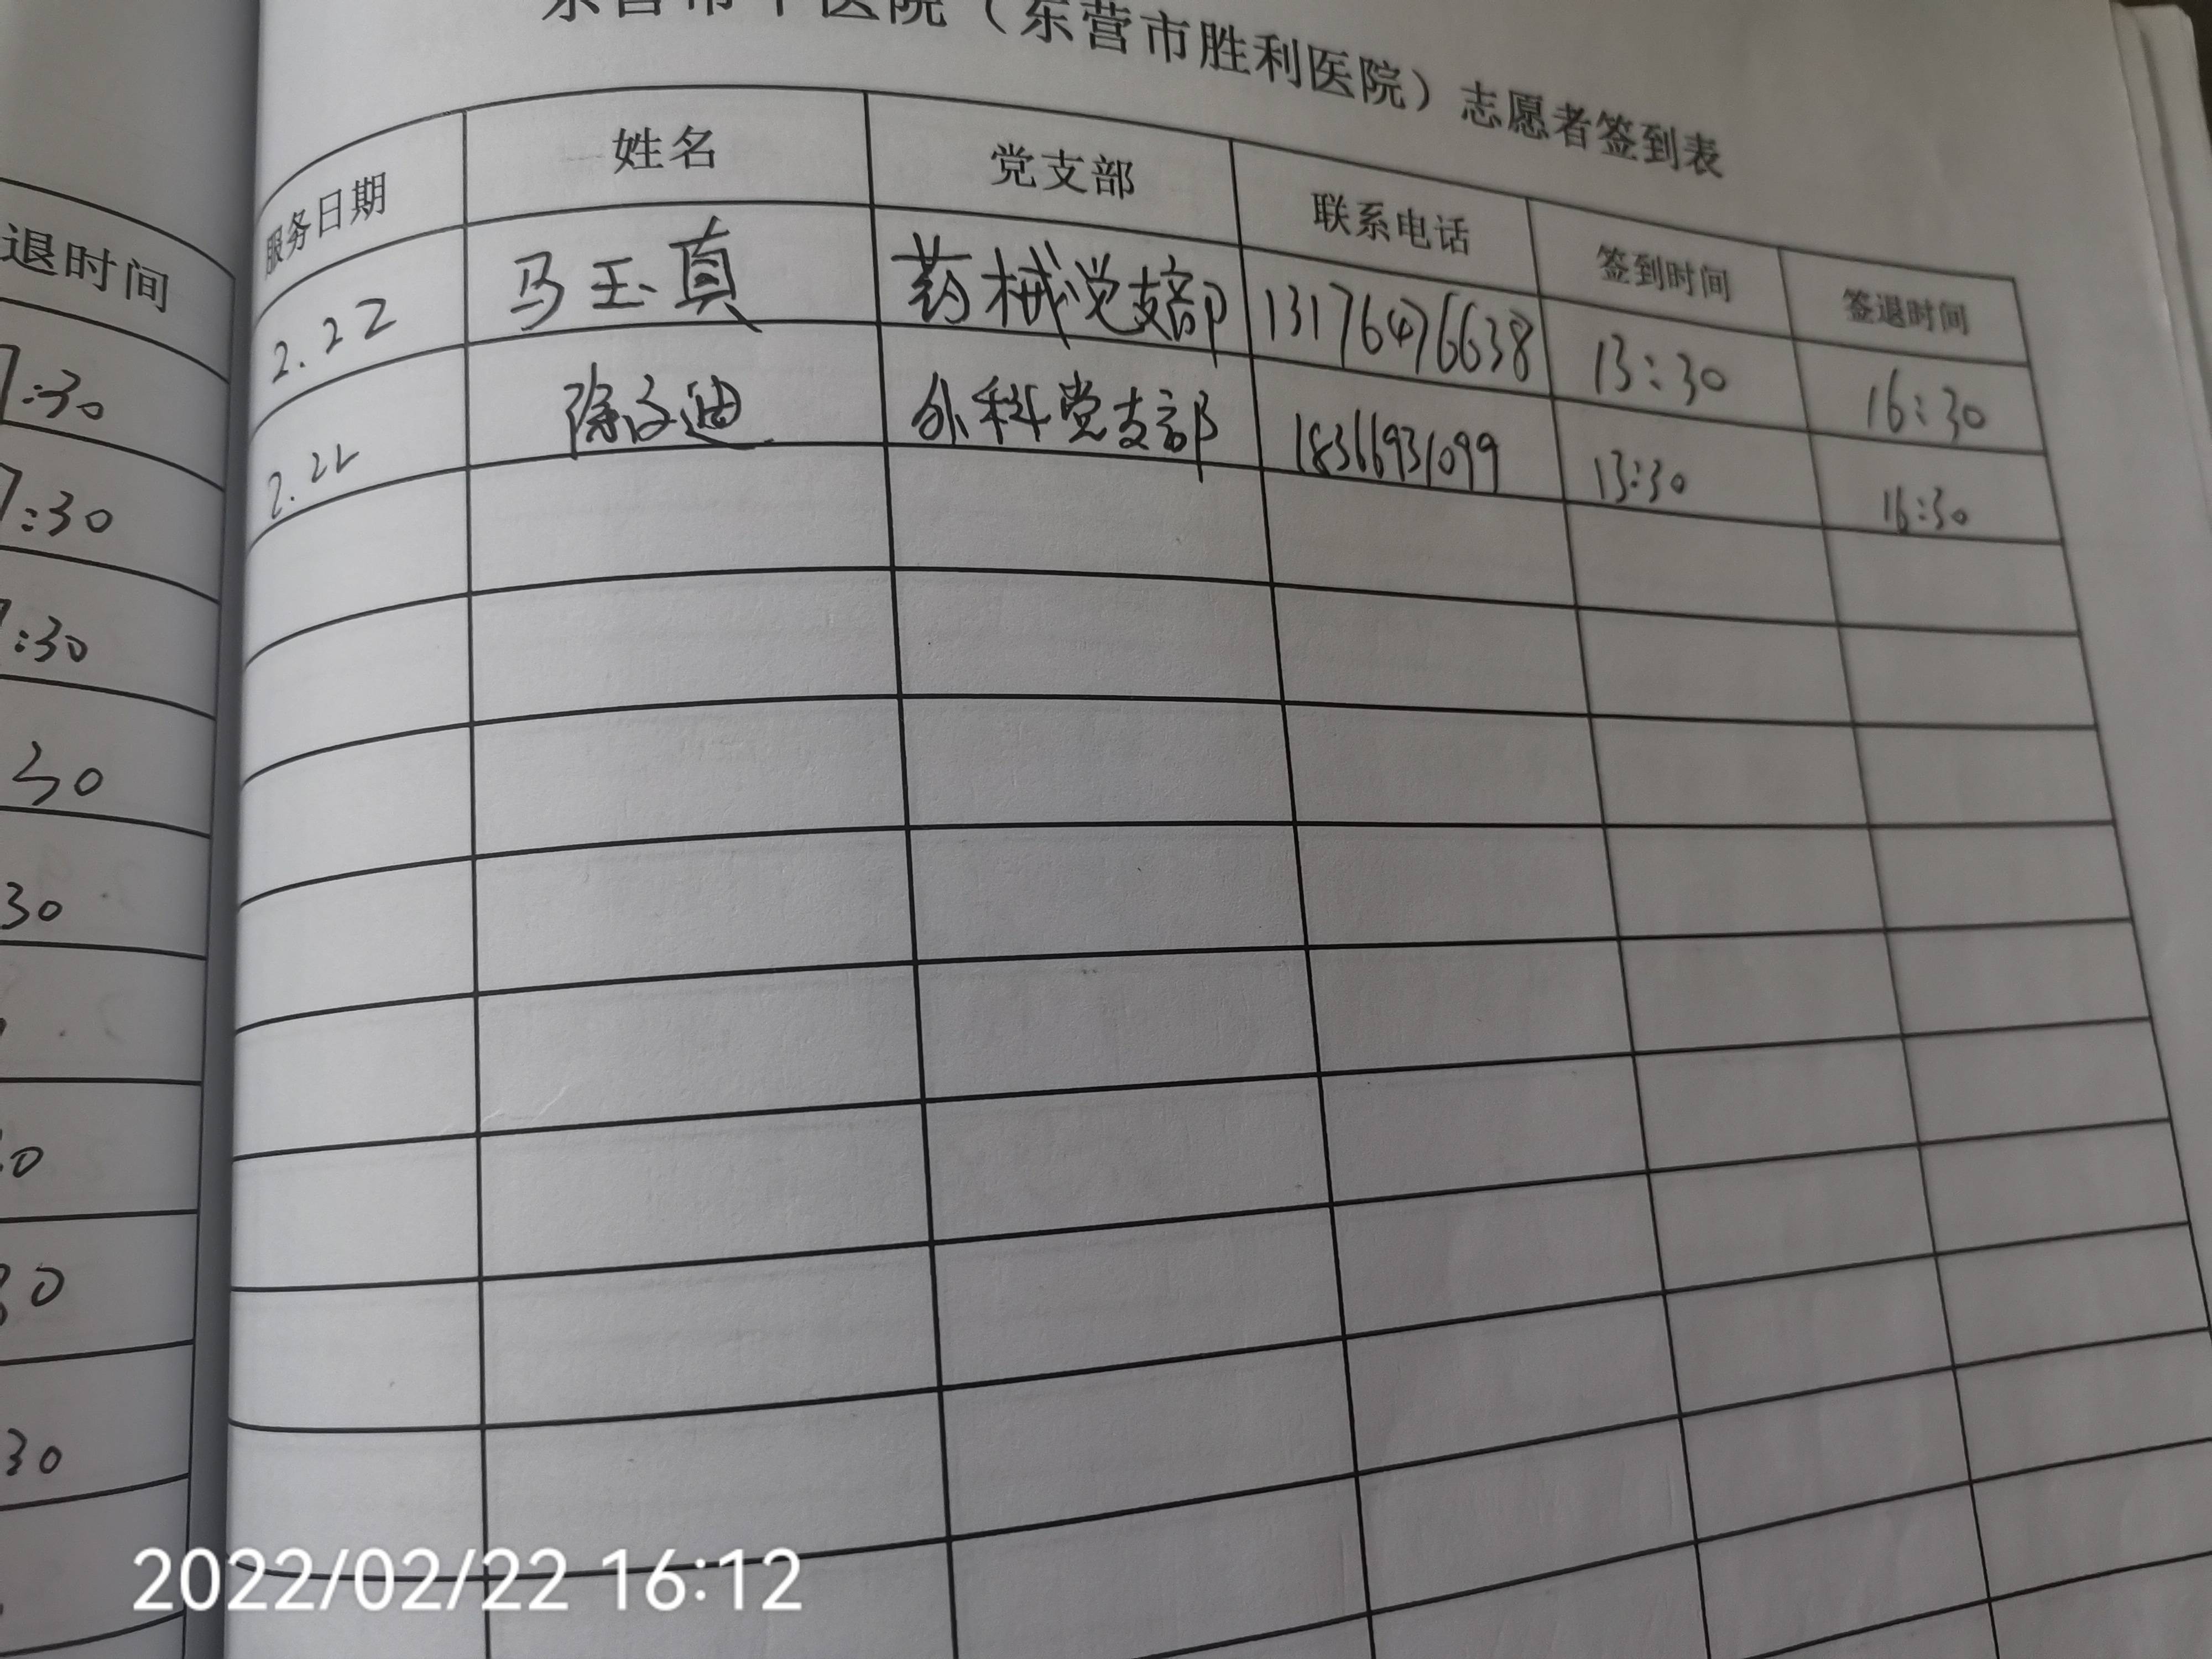 东营市中医院（东营市胜利医院）志愿者签到表
服务日期 姓名 党支部 联系电话 签到时间 签退时间
2.22 马玉真 药械党支部 13176476638 13:30 16:30
2.22 外科党支部 18366931099 13:30 16:30
退时间
:30
:30
:30
30
30
30
30
2022/02/22 16:12